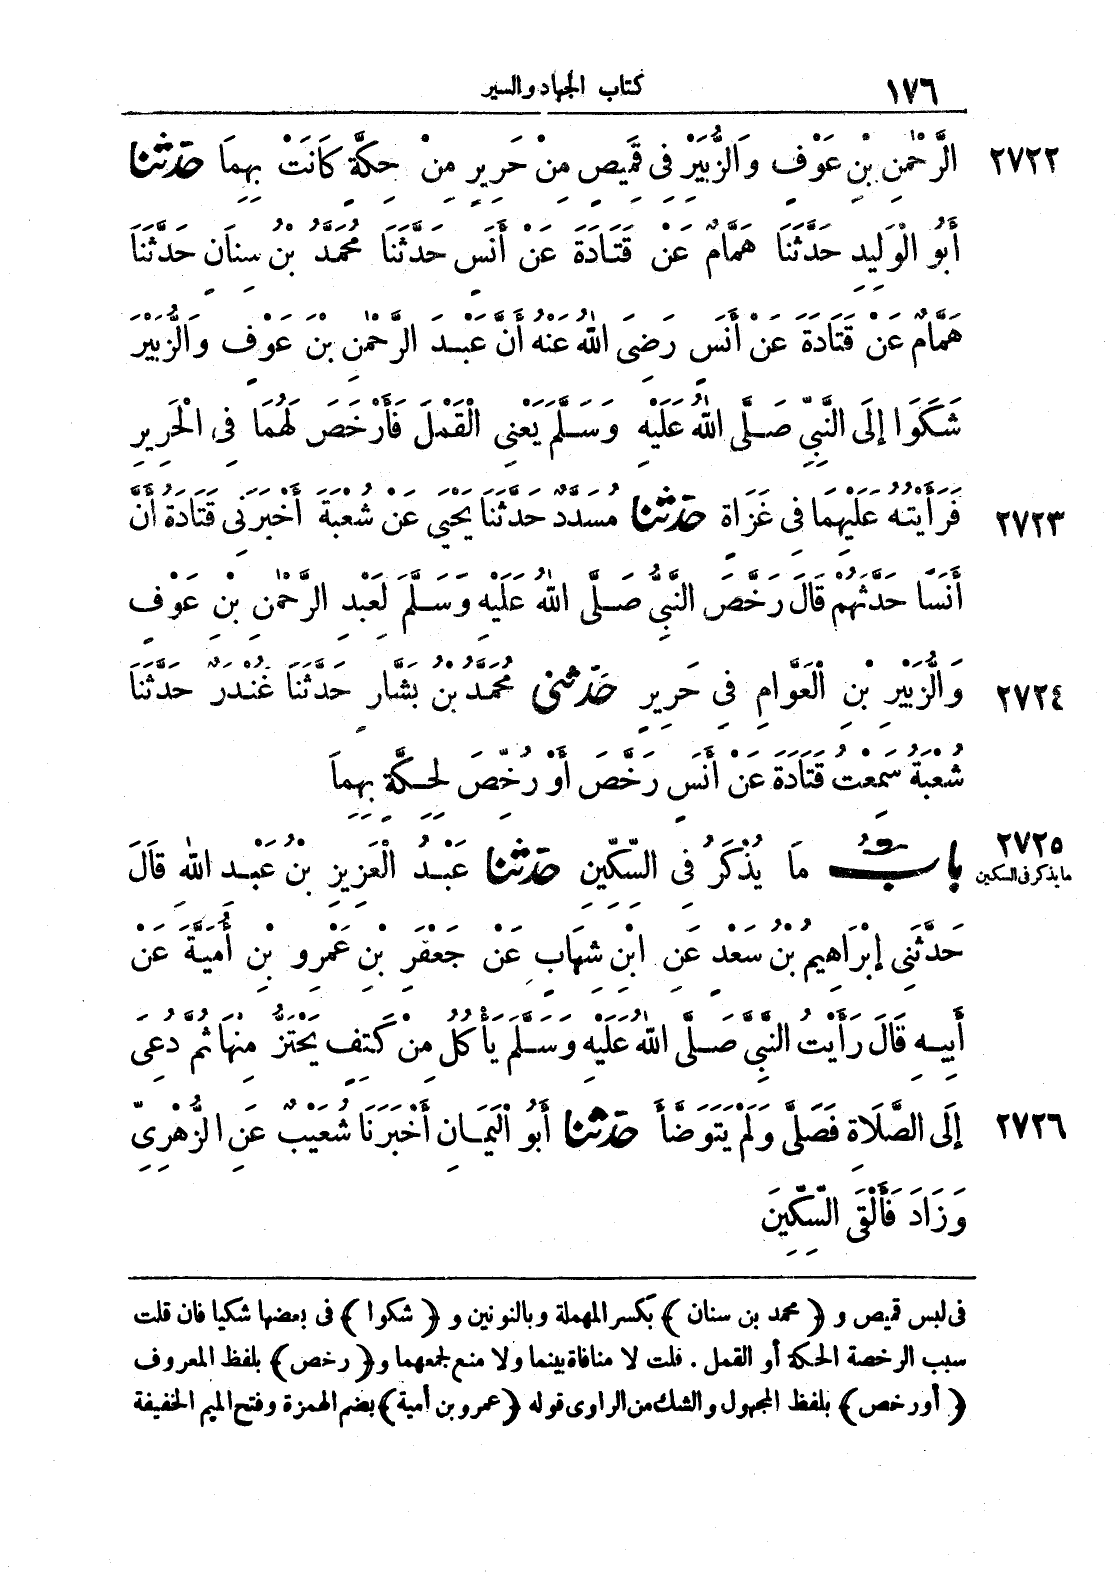 ١٧٦ كتاب الجهاد والسير
٢٧٢٢ الرَّحْمٰنِ بْنِ عَوْفٍ وَالزُّبَيْرِ فِى قَمِيصٍ مِنْ حَرِيرٍ مِنْ حِكَّةٍ كَانَتْ بِهِمَا حَدَّثَنَا
أَبُو الْوَلِيدِ حَدَّثَنَا هَمَّامٌ عَنْ قَتَادَةَ عَنْ أَنَسٍ حَدَّثَنَا مُحَمَّدُ بْنُ سِنَانٍ حَدَّثَنَا
هَمَّامٌ عَنْ قَتَادَةَ عَنْ أَنَسٍ رَضِىَ اللّٰهُ عَنْهُ أَنَّ عَبْدَ الرَّحْمٰنِ بْنَ عَوْفٍ وَالزُّبَيْرَ
شَكَوَا إِلَى النَّبِيِّ صَلَّى اللّٰهُ عَلَيْهِ وَسَلَّمَ يَعْنِى الْقَمْلَ فَأَرْخَصَ لَهُمَا فِى الْحَرِيرِ
٢٧٢٣ فَرَأَيْتُهُ عَلَيْهِمَا فِى غَزَاةٍ حَدَّثَنَا مُسَدَّدٌ حَدَّثَنَا يَحْيَى عَنْ شُعْبَةَ أَخْبَرَنِى قَتَادَةُ أَنَّ
أَنَسًا حَدَّثَهُمْ قَالَ رَخَّصَ النَّبِيُّ صَلَّى اللّٰهُ عَلَيْهِ وَسَلَّمَ لِعَبْدِ الرَّحْمٰنِ بْنِ عَوْفٍ
٢٧٢٤ وَالزُّبَيْرِ بْنِ الْعَوَّامِ فِى حَرِيرٍ حَدَّثَنِى مُحَمَّدُ بْنُ بَشَّارٍ حَدَّثَنَا غُنْدَرٌ حَدَّثَنَا
شُعْبَةُ سَمِعْتُ قَتَادَةَ عَنْ أَنَسٍ رَخَّصَ أَوْ رُخِّصَ لِحِكَّةٍ بِهِمَا
٢٧٢٥ بَابُ مَا يُذْكَرُ فِى السِّكِّينِ حَدَّثَنَا عَبْدُ الْعَزِيزِ بْنُ عَبْدِ اللّٰهِ قَالَ
ما يذكر فى السكين
حَدَّثَنِى إِبْرَاهِيمُ بْنُ سَعْدٍ عَنِ ابْنِ شِهَابٍ عَنْ جَعْفَرِ بْنِ عَمْرِو بْنِ أُمَيَّةَ عَنْ
أَبِيهِ قَالَ رَأَيْتُ النَّبِيَّ صَلَّى اللّٰهُ عَلَيْهِ وَسَلَّمَ يَأْكُلُ مِنْ كَتِفٍ يَحْتَزُّ مِنْهَا ثُمَّ دُعِىَ
٢٧٢٦ إِلَى الصَّلَاةِ فَصَلَّى وَلَمْ يَتَوَضَّأْ حَدَّثَنَا أَبُو الْيَمَانِ أَخْبَرَنَا شُعَيْبٌ عَنِ الزُّهْرِىِّ
وَزَادَ فَأَلْقَى السِّكِّينَ
فى لبس قميص و ﴿محمد بن سنان﴾ بكسر المهملة وبالنونين و ﴿شكوا﴾ فى بعضها شكيا فان قلت
سبب الرخصة الحكة أو القمل . قلت لا منافاة بينما ولا منع لجمعهما و ﴿رخص﴾ بلفظ المعروف
﴿أو رخص﴾ بلفظ المجهول والشك من الراوى قوله ﴿عمرو بن أمية﴾ بضم الهمزة وفتح الميم الخفيفة